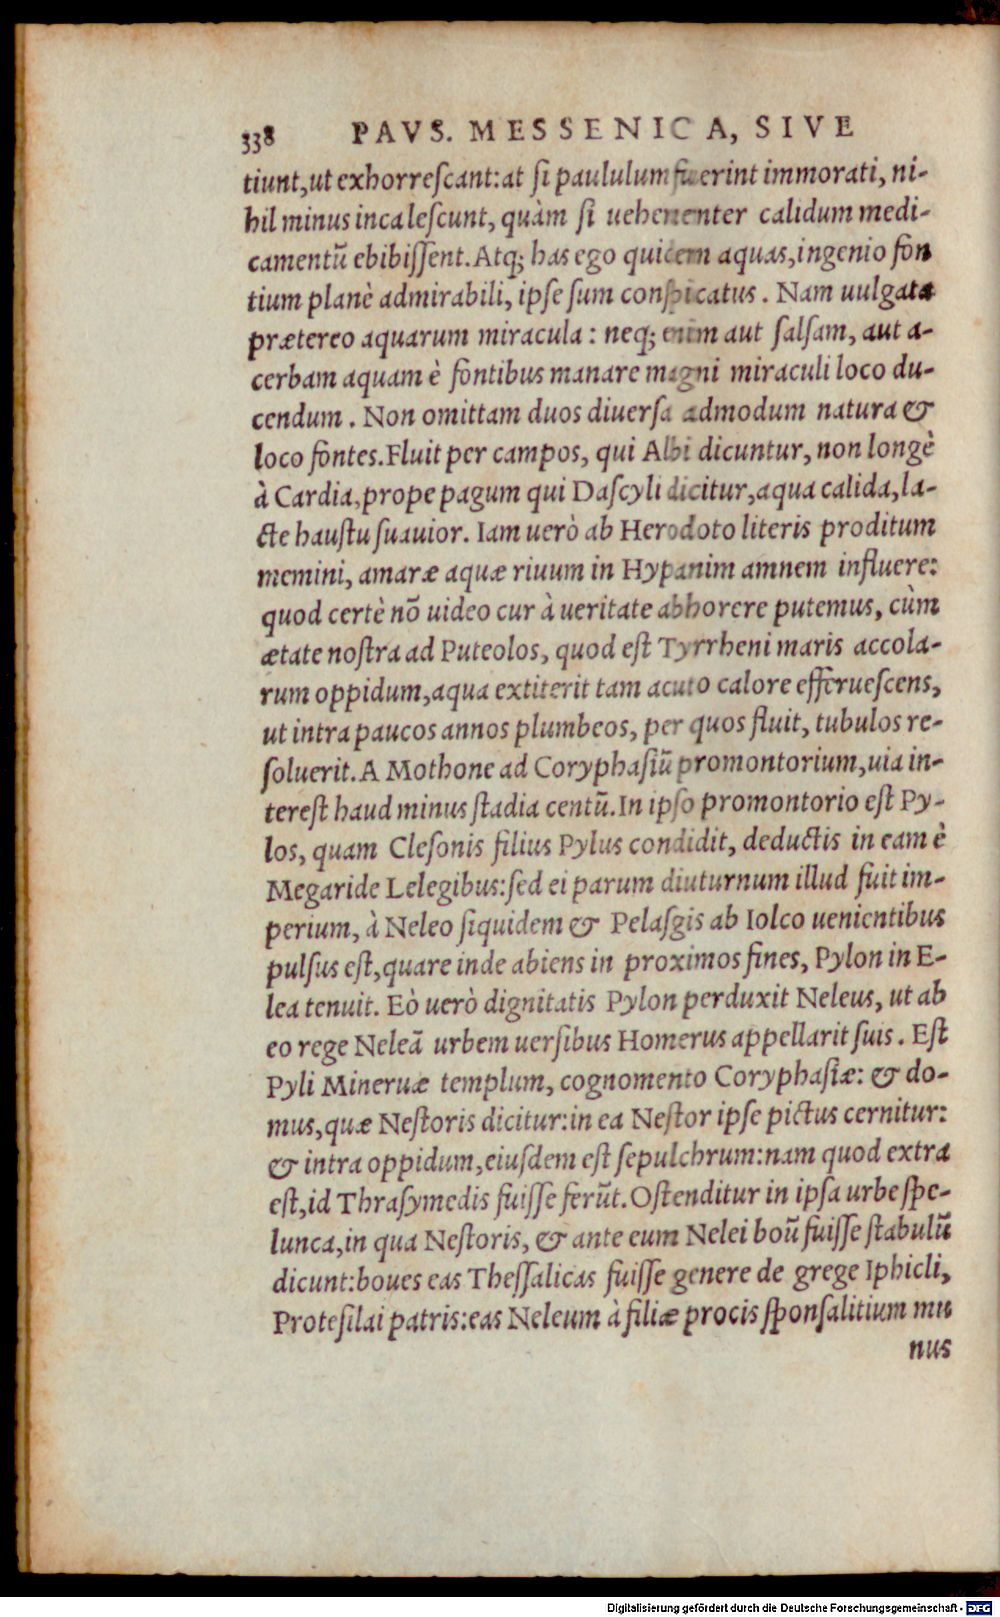 338 PAVS. MESSENICA, SIVE
tiunt, ut exhorrescant: at si paululum fuerint immorati, ni-
hil minus incalescunt, quàm si uehementer calidum medi-
camentũ ebibissent. Atq; has ego quidem aquas, ingenio fon
tium planè admirabili, ipse sum conspicatus. Nam uulgata
prætereo aquarum miracula: neq; enim aut salsam, aut a-
cerbam aquam è fontibus manare magni miraculi loco du-
cendum. Non omittam duos diuersa admodum natura &
loco fontes. Fluit per campos, qui Albi dicuntur, non longè
à Cardia, prope pagum qui Dascyli dicitur, aqua calida, la-
cte haustu suauior. Iam uerò ab Herodoto literis proditum
memini, amaræ aquæ riuum in Hypanim amnem influere:
quod certè nõ uideo cur à ueritate abhorere putemus, cùm
ætate nostra ad Puteolos, quod est Tyrrheni maris accola-
rum oppidum, aqua extiterit tam acuto calore efferuescens,
ut intra paucos annos plumbeos, per quos fluit, tubulos re-
soluerit. A Mothone ad Coryphasiũ promontorium, uia in-
terest haud minus stadia centũ. In ipso promontorio est Py-
los, quam Clesonis filius Pylus condidit, deductis in eam è
Megaride Lelegibus: sed ei parum diuturnum illud fuit im-
perium, à Neleo siquidem & Pelasgis ab Iolco uenientibus
pulsus est, quare inde abiens in proximos fines, Pylon in E-
lea tenuit. Eò uerò dignitatis Pylon perduxit Neleus, ut ab
eo rege Neleã urbem uersibus Homerus appellarit suis. Est
Pyli Mineruæ templum, cognomento Coryphasiæ: & do-
mus, quæ Nestoris dicitur: in ea Nestor ipse pictus cernitur:
& intra oppidum, eiusdem est sepulchrum: nam quod extra
est, id Thrasymedis fuisse ferũt. Ostenditur in ipsa urbe spe-
lunca, in qua Nestoris, & ante eum Nelei boũ fuisse stabulũ
dicunt: boues eas Thessalicas fuisse genere de grege Iphicli,
Protesilai patris: eas Neleum à filiæ procis sponsalitium mu
nus
Digitalisierung gefördert durch die Deutsche Forschungsgemeinschaft - DFG